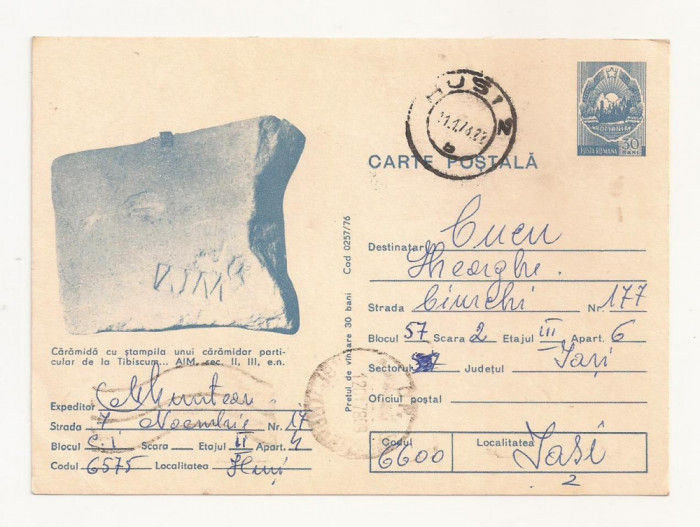 HUȘI 2
CARTE POȘTALĂ
POSTA ROMANA 30 BANI
Cărămidă cu ștampila unui cărămidar parti-
cular de la Tibiscum... AIM, sec. II, III, e.n.
Expeditor Munteanu
Strada 7 Noembrie Nr. 14
Blocul C.1 Scara Etajul II Apart. 4
Codul 6575 Localitatea Huși
Prețul de vînzare 30 bani Cod 0257/76
Destinatar Cucu
Gheorghe.
Strada Ciurchi Nr. 177
Blocul 57 Scara 2 Etajul III Apart. 6
Sectorul Județul Iași
Oficiul poștal
Codul Localitatea
6600 Iasi
2